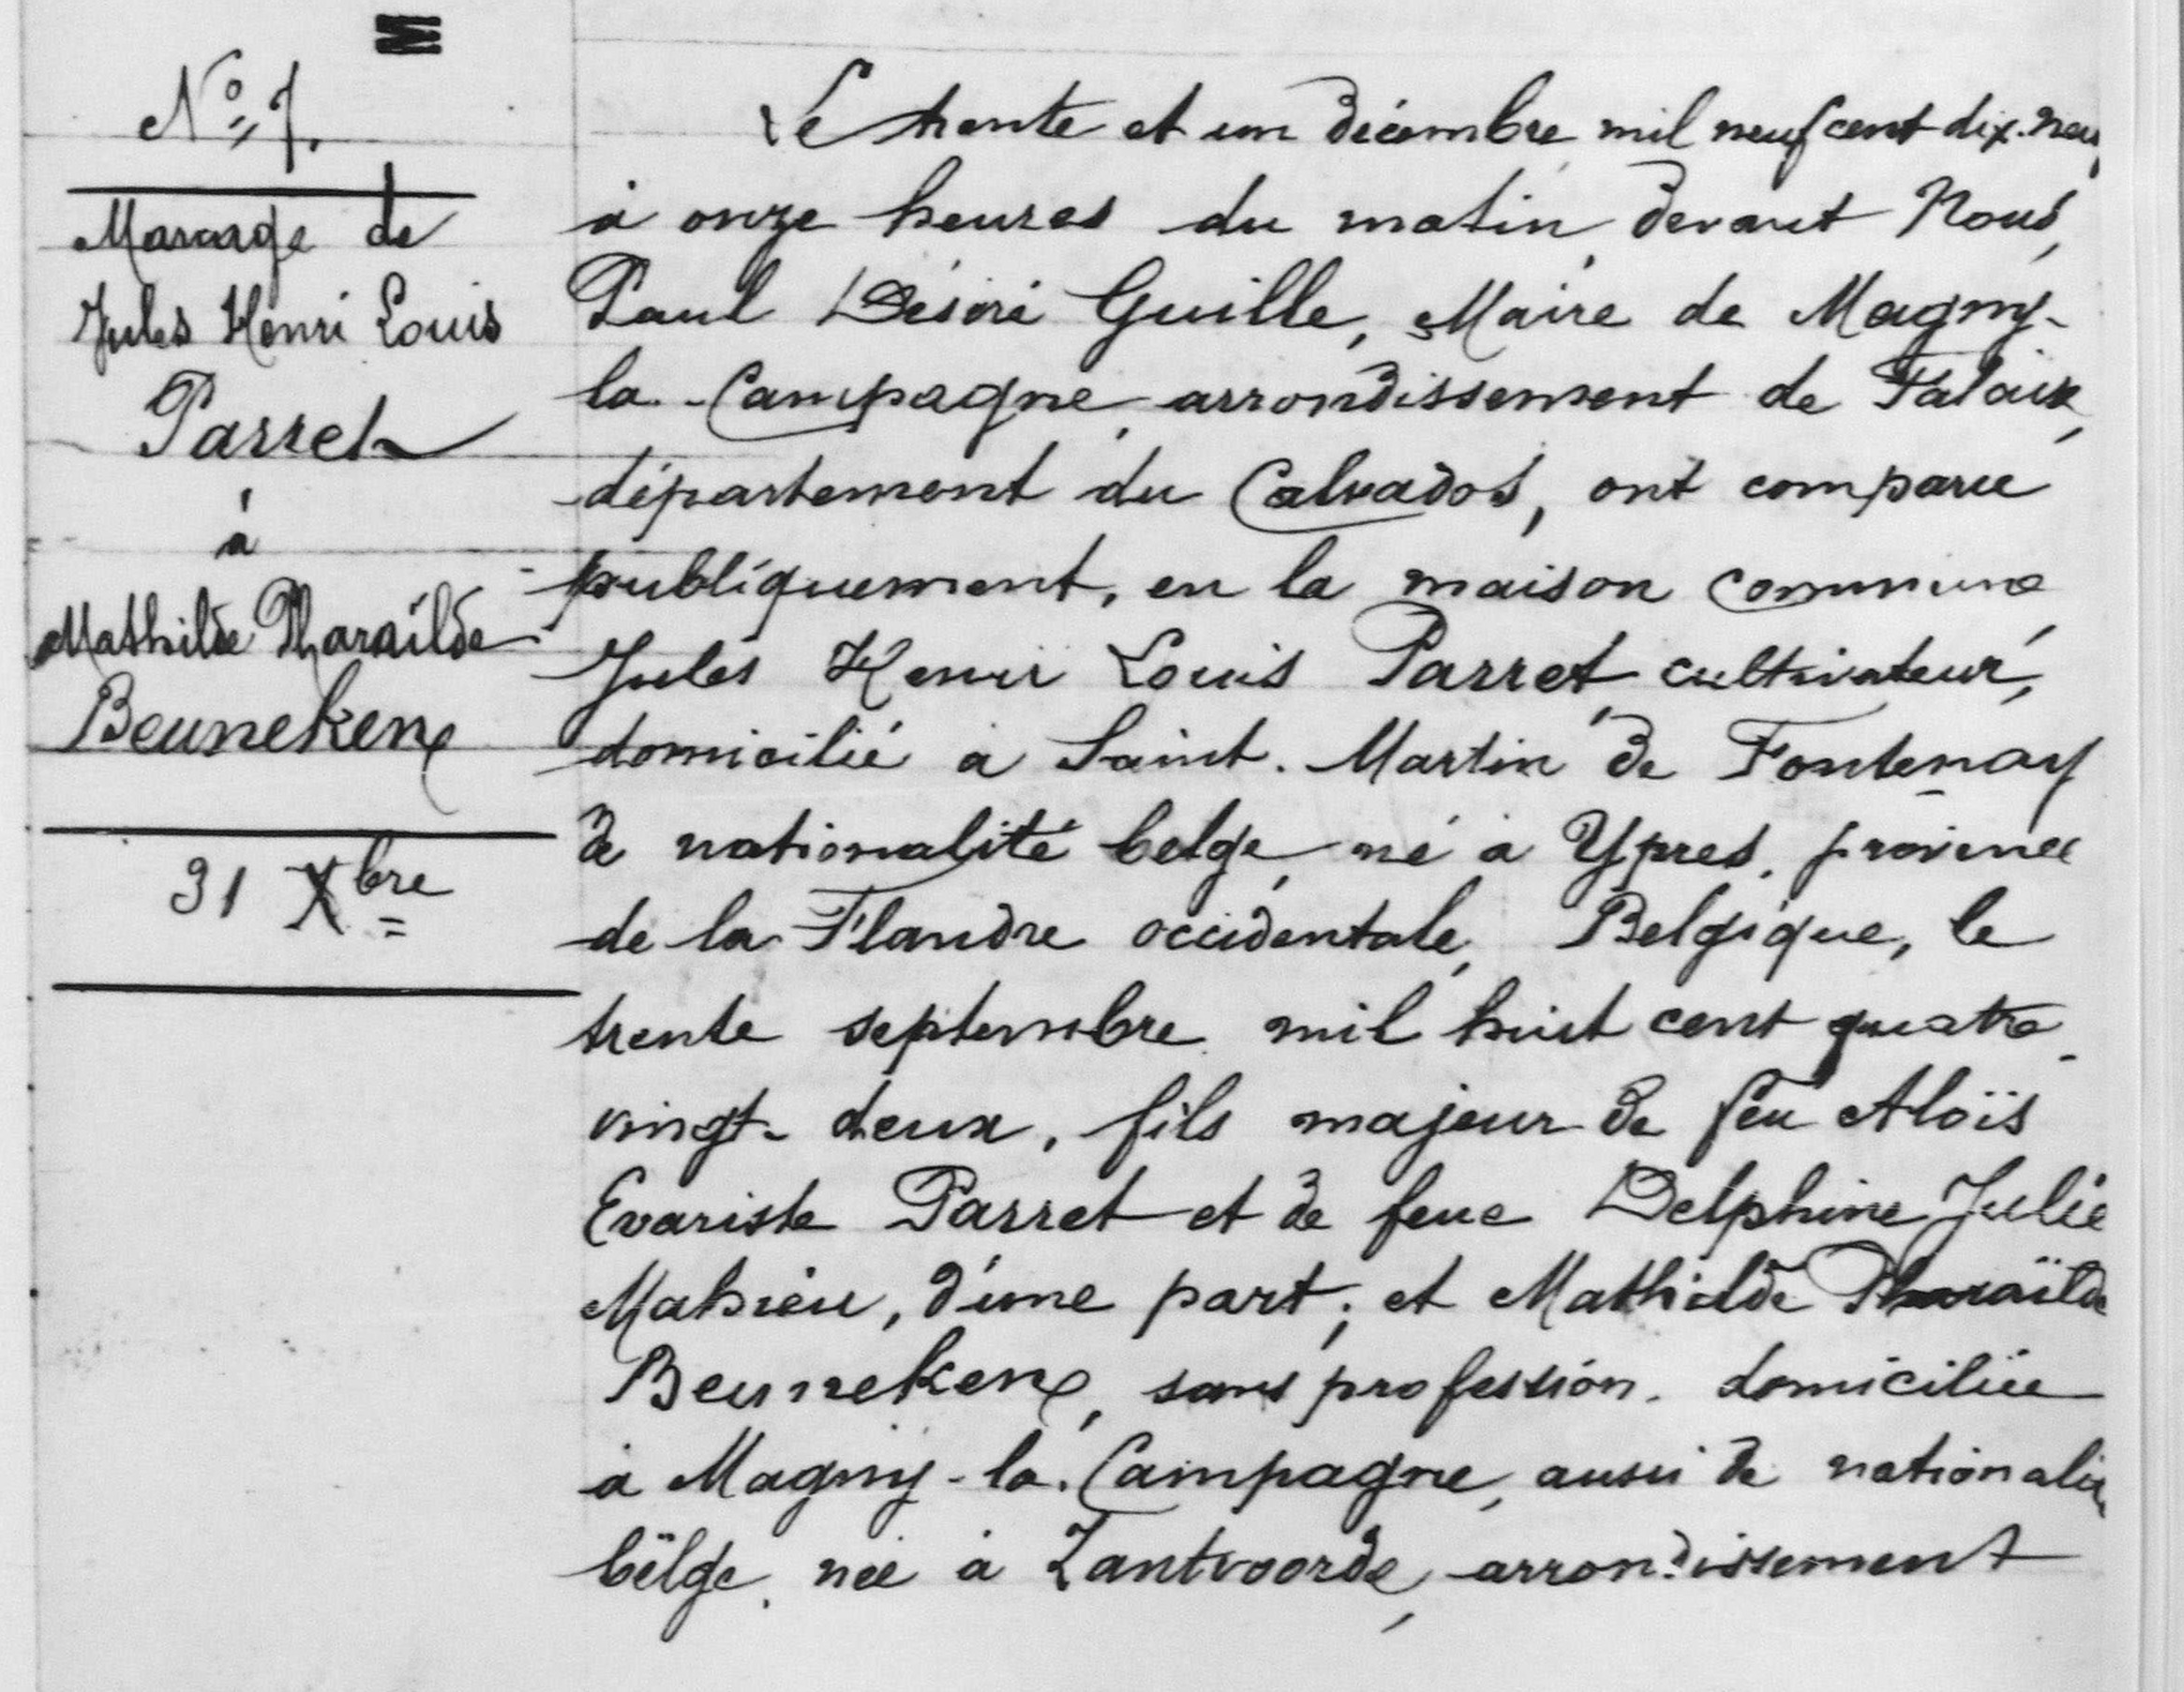 N° 7.
Mariage de
Jules Henri Louis
Parret
à
Mathilde Pharaïlde
Beunekens
31 Xbre
Le trente et un décembre mil neuf cent dix-neuf
à onze heures du matin, devant Nous,
Paul Désiré Guille, Maire de Magny-
la-Campagne, arrondissement de Falaise,
département du Calvados, ont comparu
publiquement, en la maison commune,
Jules Henri Louis Parret, cultivateur,
domicilié à Saint-Martin de Fontenay
de nationalité belge, né à Ypres, province
de la Flandre occidentale, Belgique, le
trente septembre mil huit cent quatre-
vingt-deux, fils majeur de feu Aloïs
Evariste Parret et de feue Delphine Julie
Mahieu, d'une part; et Mathilde Pharaïlde
Beunekens, sans profession, domiciliée
à Magny-la-Campagne, aussi de nationalité
belge, née à Zantvoorde, arrondissement